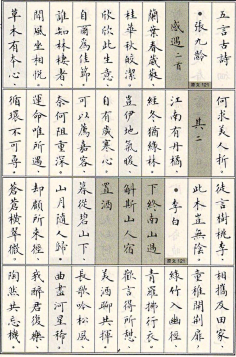 五言古詩
・張九齡
感遇之首
蘭葉春葳蕤
桂華秋皎潔
欣欣此生意
自爾為佳節
誰知林棲者
聞風坐相悅
草木有本心
何求美人折
其二
江南有丹橘
經冬猶綠林
豈伊地氣暖
自有歲寒心
可以薦嘉客
奈何阻重深
運命唯所遇
循環不可尋
徒言樹桃李
此木豈無陰
・李白
下終南山過
斛斯山人宿
置酒
暮從碧山下
山月隨人歸
卻顧所來徑
蒼蒼橫翠微
相攜及田家
童稚開荆扉
綠竹入幽徑
青蘿拂行衣
歡言得所憩
美酒聊共揮
長歌吟松風
曲盡河星稀
我醉君復樂
陶然共忘機